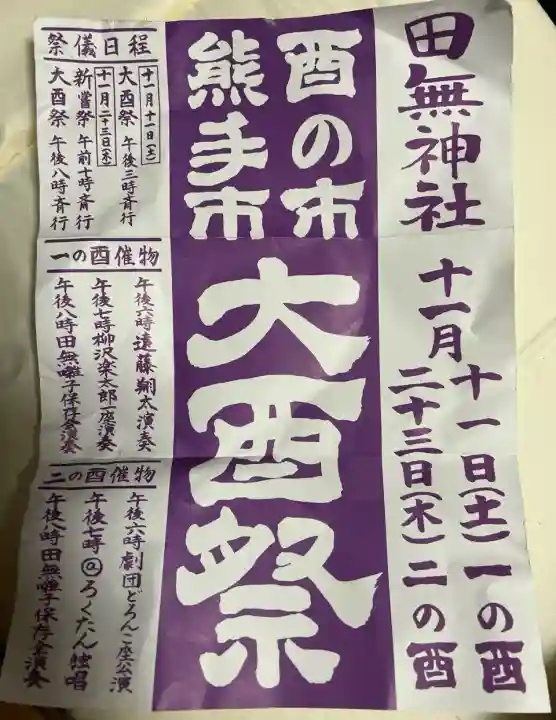 田無神社
十一月
十一日(土)一の酉
二十三日(木)二の酉
酉の市
熊手市
大酉祭
祭儀日程
十一月十一日(土)
大酉祭 午後三時斉行
十一月二十三日(木)
新嘗祭 午前十時斉行
大酉祭 午後八時斉行
一の酉催物
午後六時遠藤翔太演奏
午後七時柳沢楽太郎一座演奏
午後八時田無囃子保存会演奏
二の酉催物
午後六時劇団どろんこ座公演
午後七時@ろくたん独唱
午後八時田無囃子保存会演奏